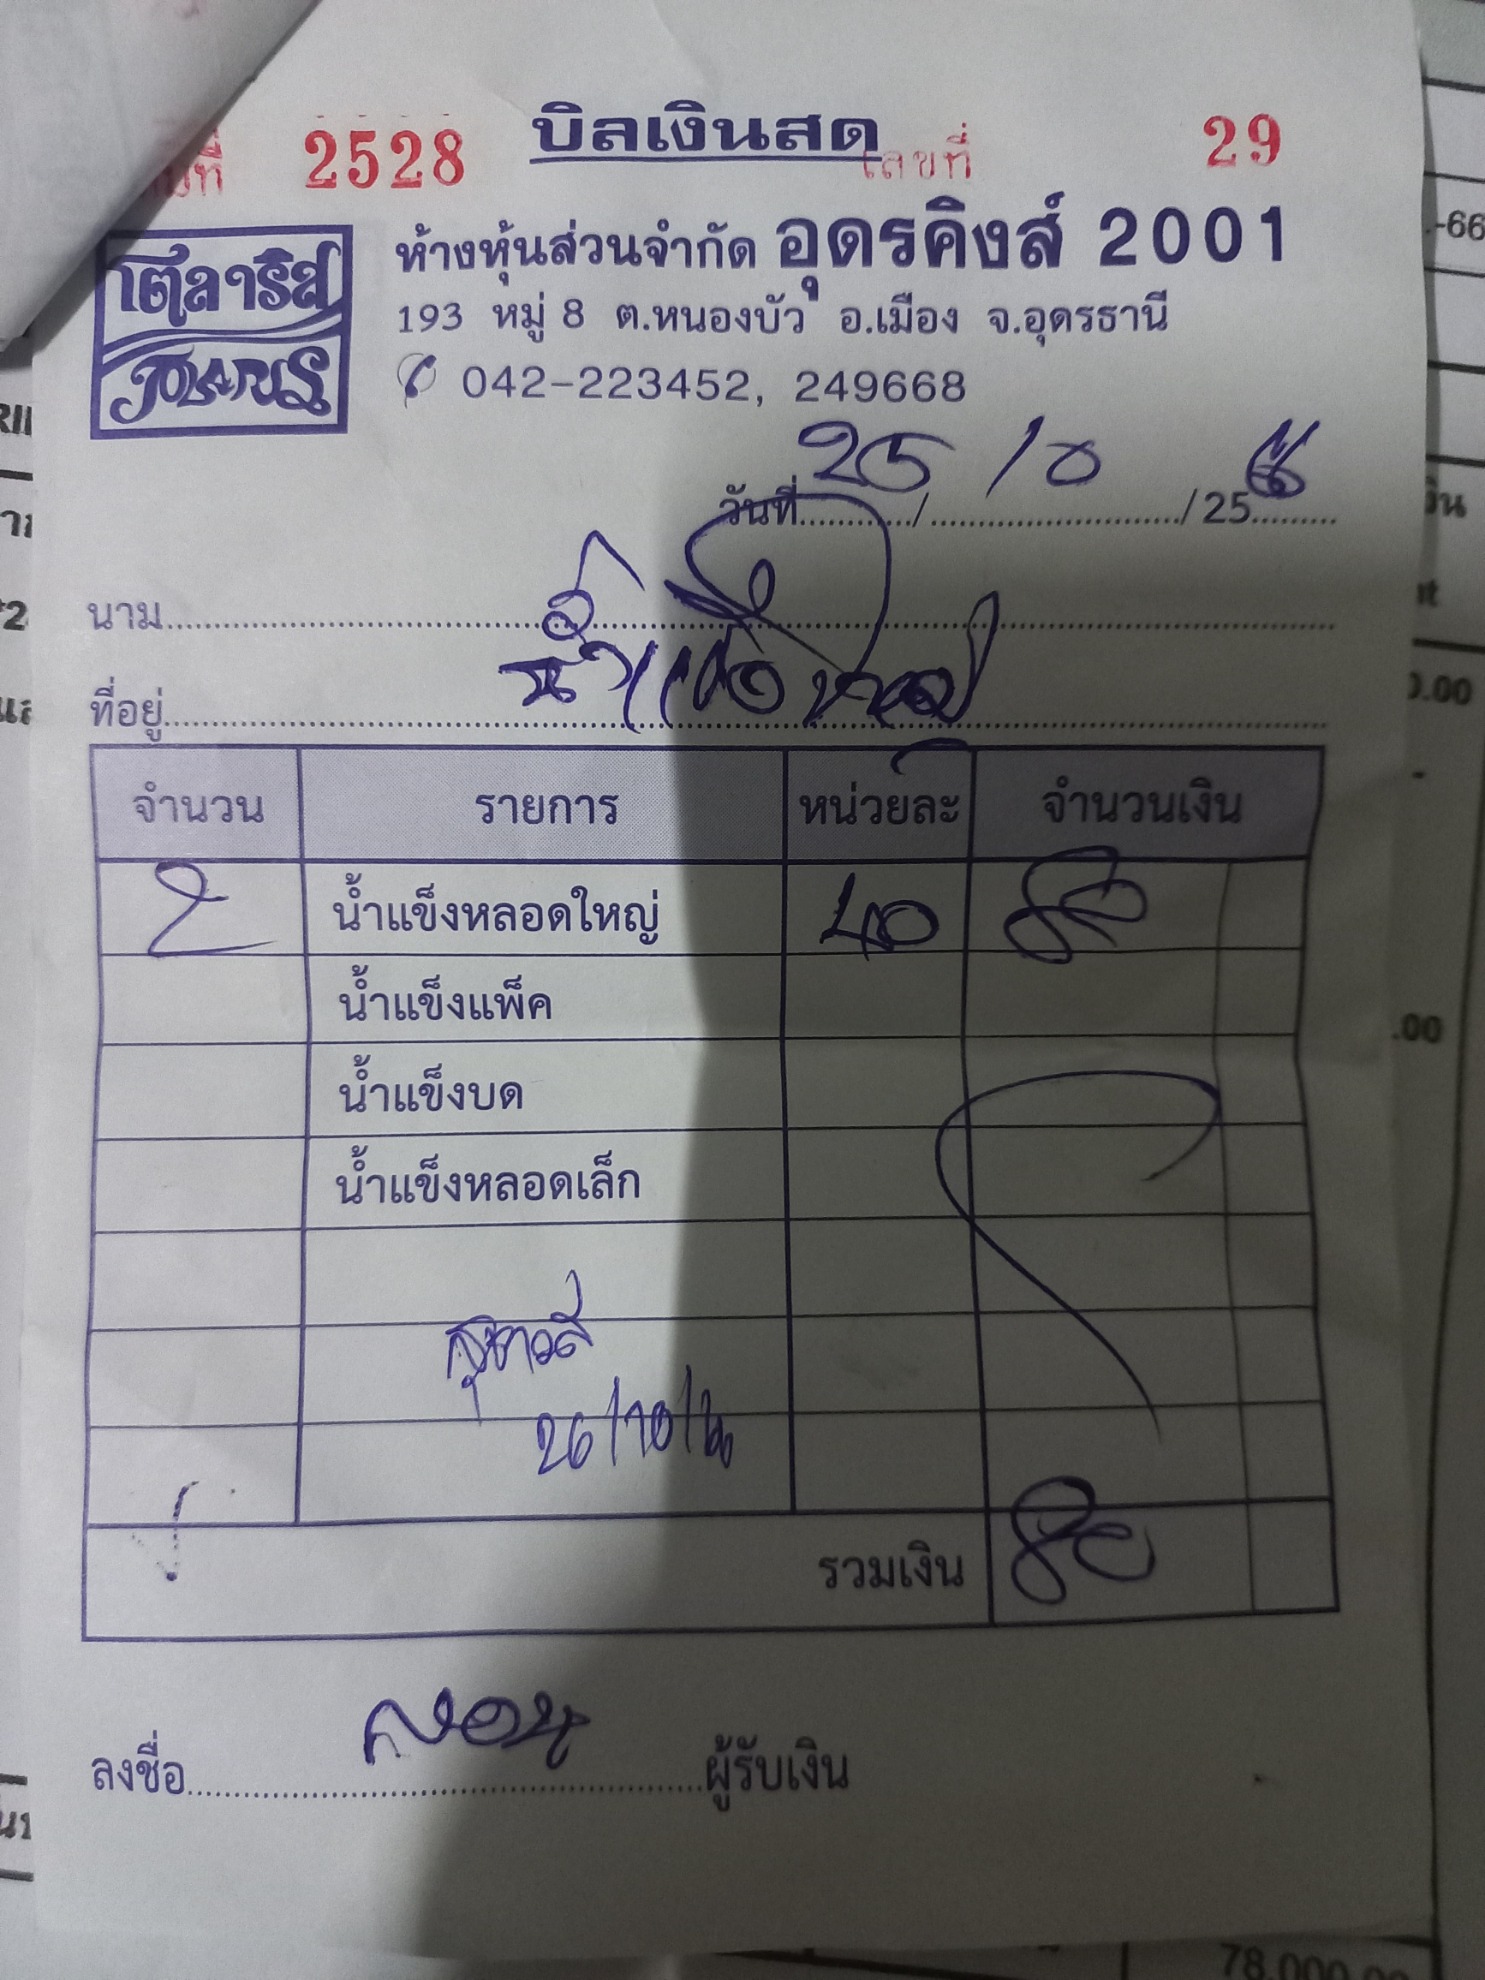 บิลเงินสด
ที่ 2528 เลขที่ 29
โตลาริส
POLARIS
ห้างหุ้นส่วนจำกัด อุดรคิงส์ 2001
193 หมู่ 8 ต.หนองบัว อ.เมือง จ.อุดรธานี
042-223452, 249668
วันที่ 25 / 10 / 25 66
นาม
น้ำแข็งหลอด
ที่อยู่
จำนวน รายการ หน่วยละ จำนวนเงิน
2 น้ำแข็งหลอดใหญ่ 40 80
น้ำแข็งแพ็ค
น้ำแข็งบด
น้ำแข็งหลอดเล็ก
26/10/66
รวมเงิน 80
ลงชื่อ ผู้รับเงิน
-66
0.00
.00
78,000.00